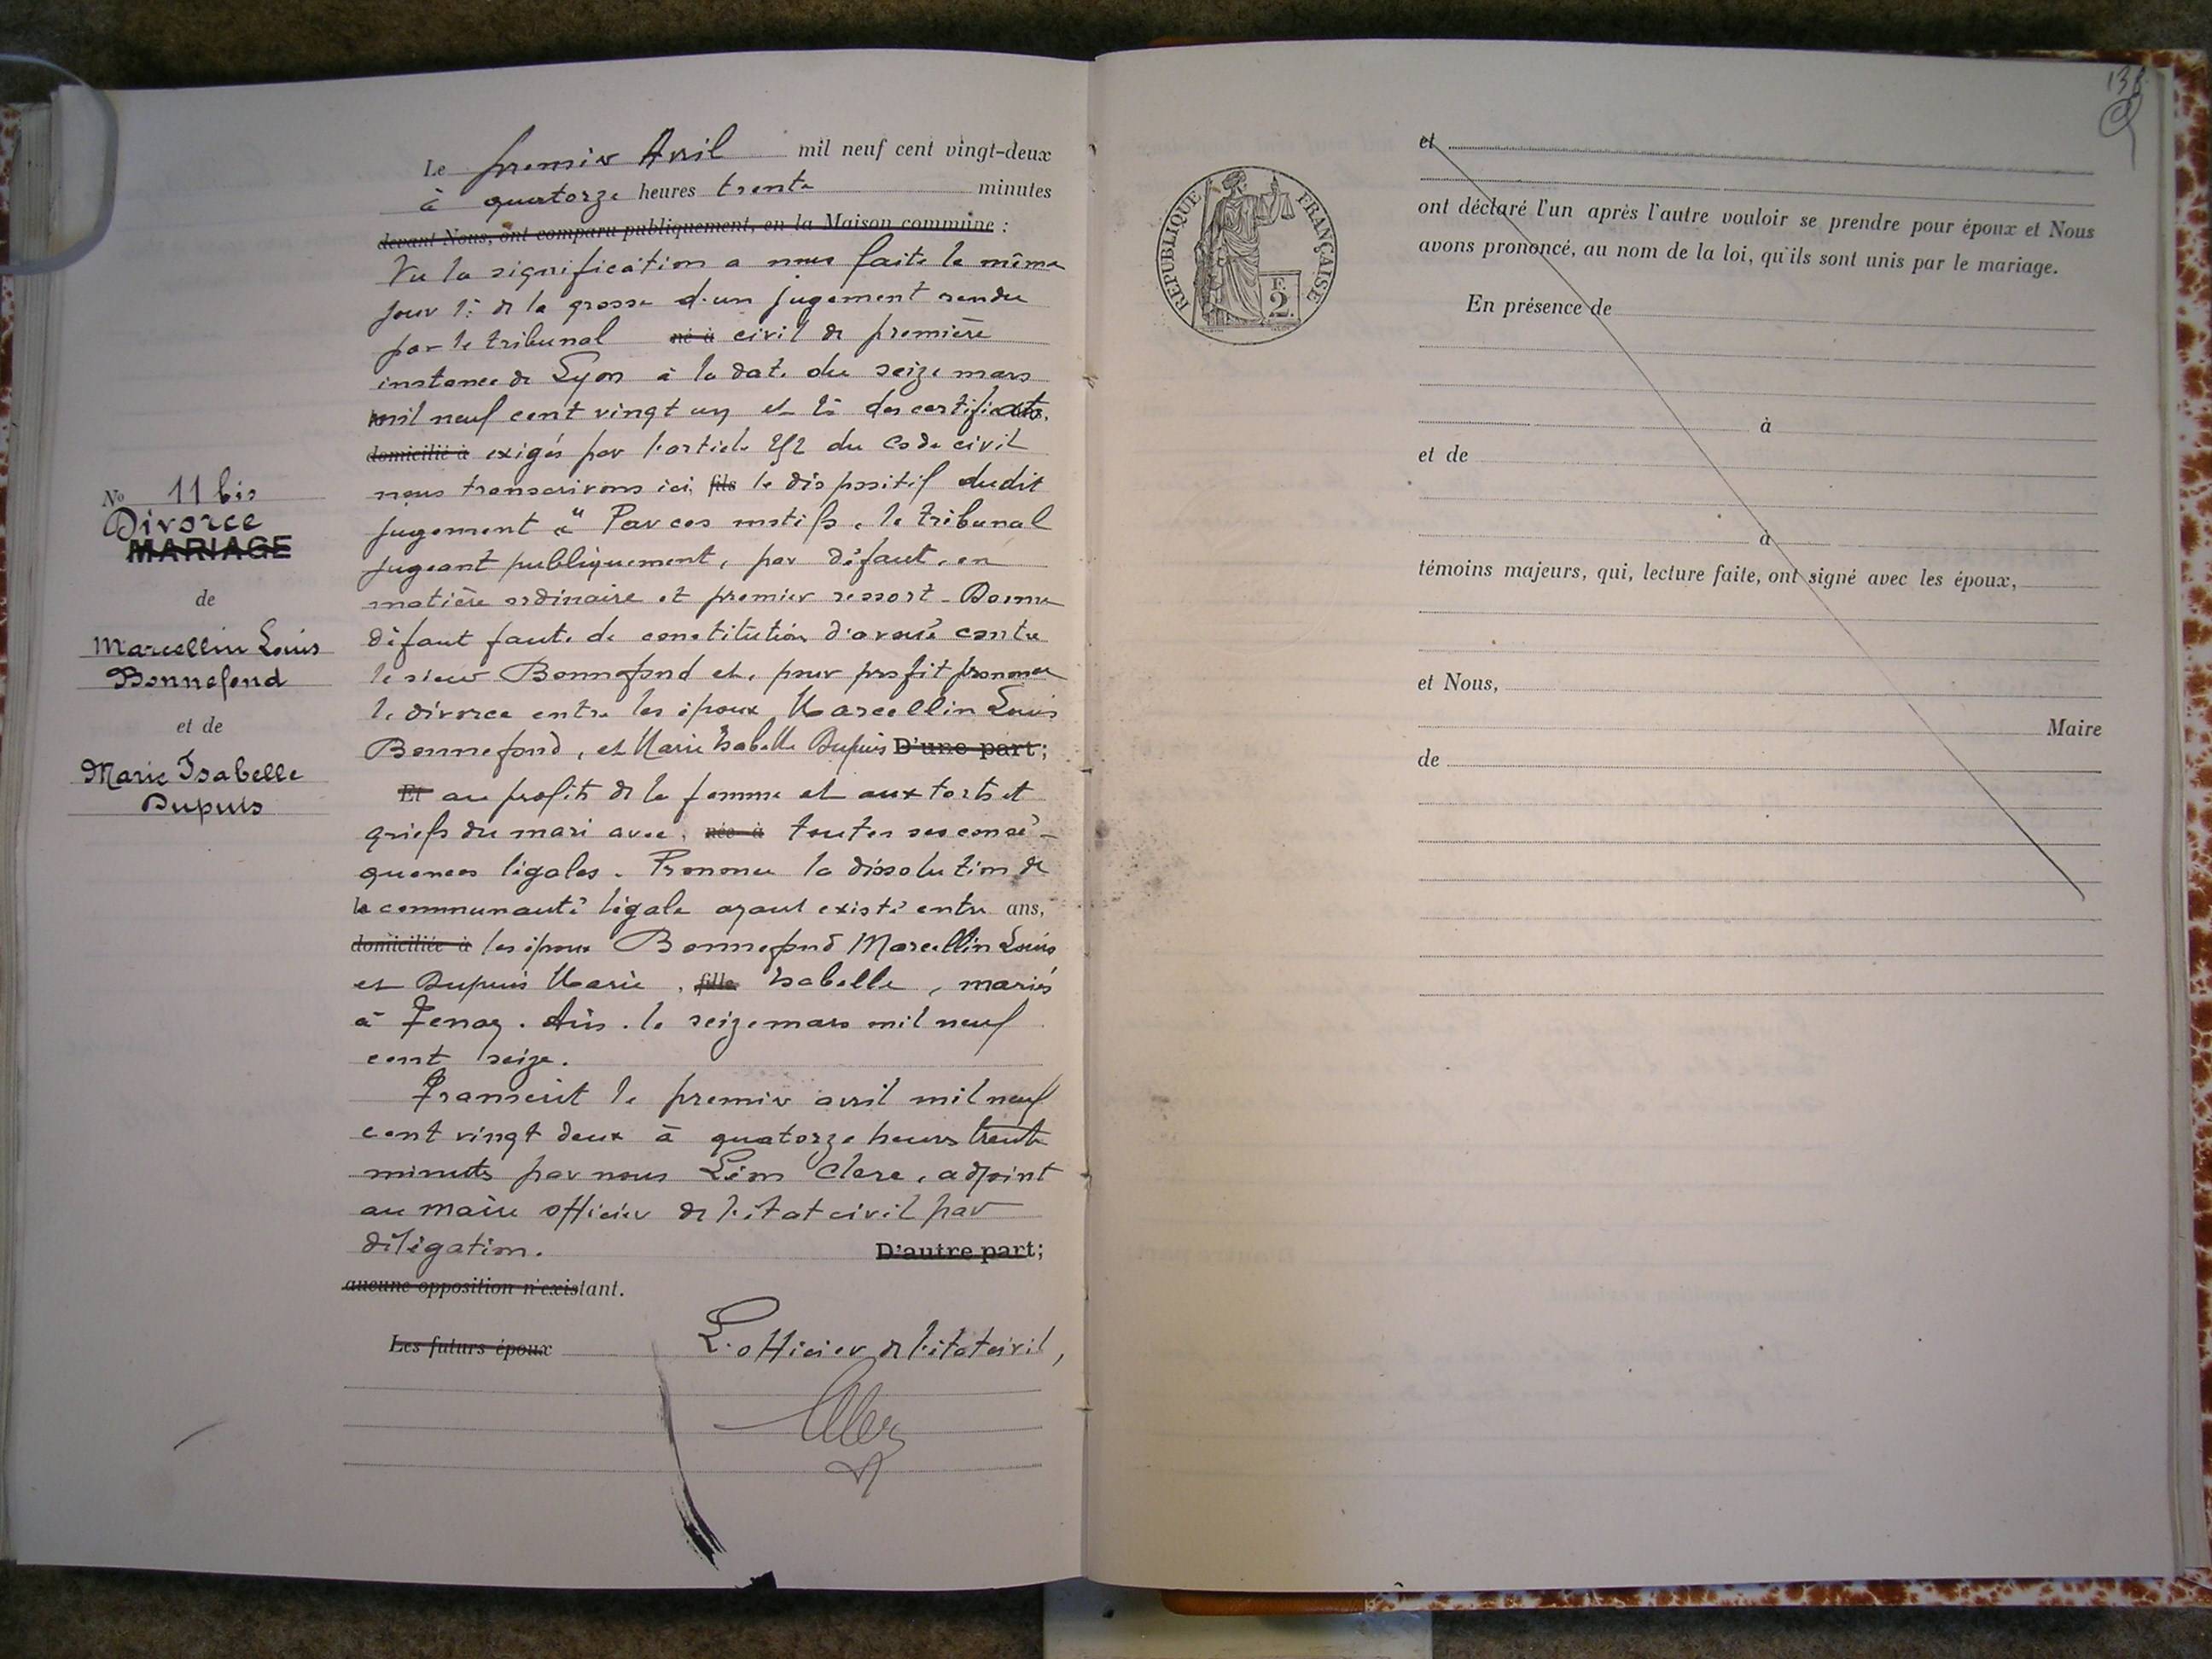 Le premier Avril mil neuf cent vingt-deux
à quatorze heures trente minutes
devant Nous, ont comparu publiquement, en la Maison commune :
Vu la signification a nous faite le même
jour 1° de la grosse d'un jugement rendu
par le tribunal né à civil de première
instance de Lyon à la date du seize mars
mil neuf cent vingt un et 2° des certificats
domicilié à exigés par l'article 252 du Code civil
nous transcrivons ici, fils le dispositif dudit
jugement " Par ces motifs, le tribunal
jugeant publiquement, par défaut, en
matière ordinaire et premier ressort - Donne
défaut faute de constitution d'avoué contre
le sieur Bonnefond et, pour profit prononce
le divorce entre les époux Marcellin Louis
Bonnefond, et Marie Isabelle Dupuis D'une part;
Et au profit de la femme et aux torts et
griefs du mari avec, née à toutes ses consé-
quences légales. Prononce la dissolution de
la communauté légale ayant existé entre ans,
domiciliée à les époux Bonnefond Marcellin Louis
et Dupuis Marie, fille Isabelle, mariés
à Tenay. Ain. le seize mars mil neuf
cent seize.
Transcrit le premier avril mil neuf
cent vingt deux à quatorze heures trente
minutes par nous Léon Clerc, adjoint
au maire officier de l'état civil par
délégation. D'autre part;
aucune opposition n'existant.
Les futurs époux L'officier de l'état civil,
No 11 bis
Divorce
MARIAGE
de
Marcellin Louis
Bonnefond
et de
Marie Isabelle
Dupuis
RÉPUBLIQUE FRANÇAISE
F.
2.
et
ont déclaré l'un après l'autre vouloir se prendre pour époux et Nous
avons prononcé, au nom de la loi, qu'ils sont unis par le mariage.
En présence de
à
et de
à
témoins majeurs, qui, lecture faite, ont signé avec les époux,
et Nous,
Maire
de